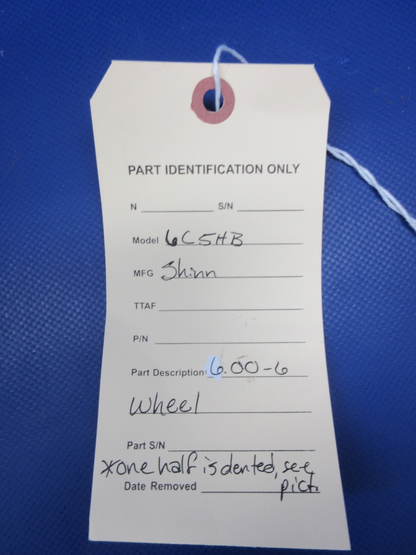 PART IDENTIFICATION ONLY
N S/N
Model 6C5HB
MFG Shinn
TTAF
P/N
Part Description 6.00-6
Wheel
Part S/N
*one half is dented, see
Date Removed pict.